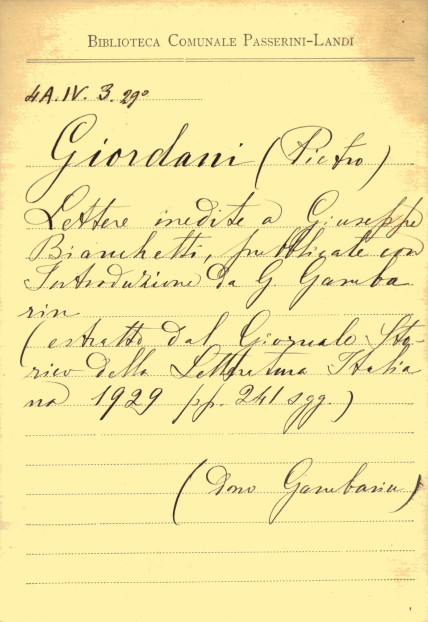 BIBLIOTECA COMUNALE PASSERINI-LANDI
4A.IV. 3. 29º
Giordani (Pietro)
Lettere inedite a Giuseppe
Bianchetti, pubblicate con
Introduzione da G. Gamba
rin
(estratto dal Giornale Sto-
rico della Letteratura Italia
na 1929 pp. 241 sgg.)
(dono Gambarin)